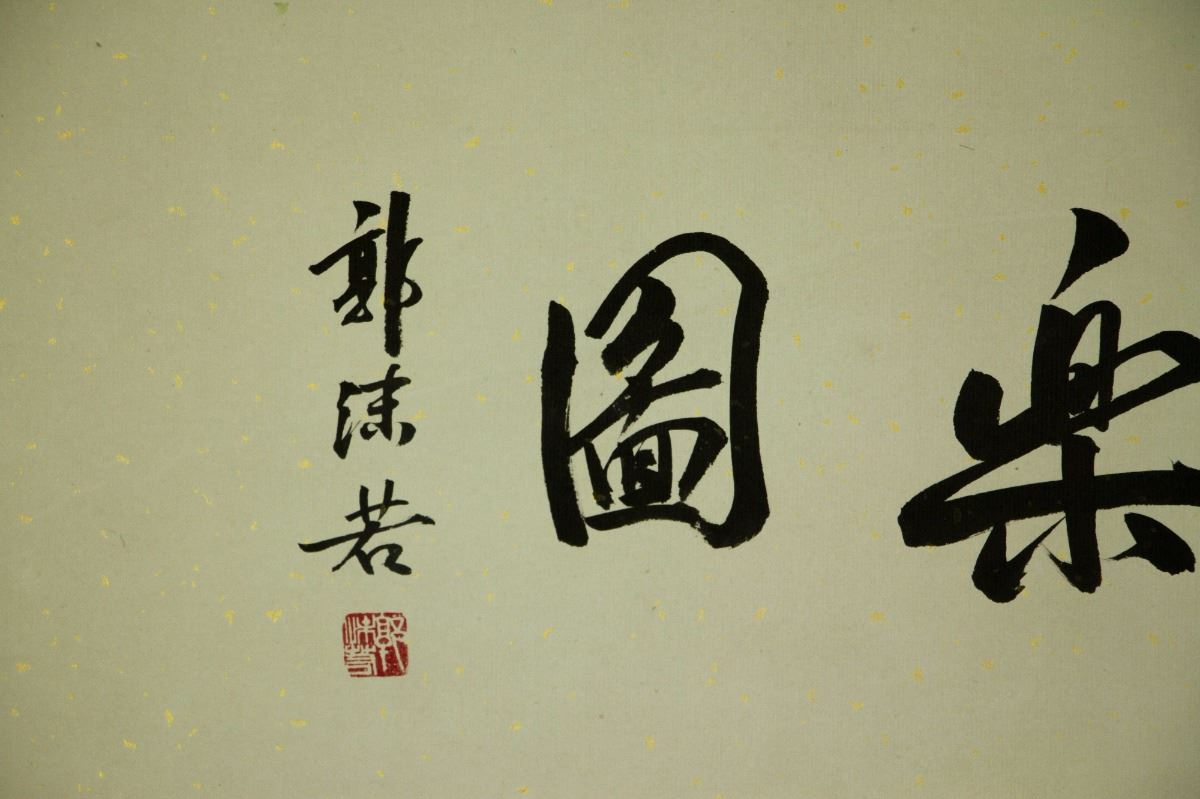 樂圖
郭沫若
郭沫若